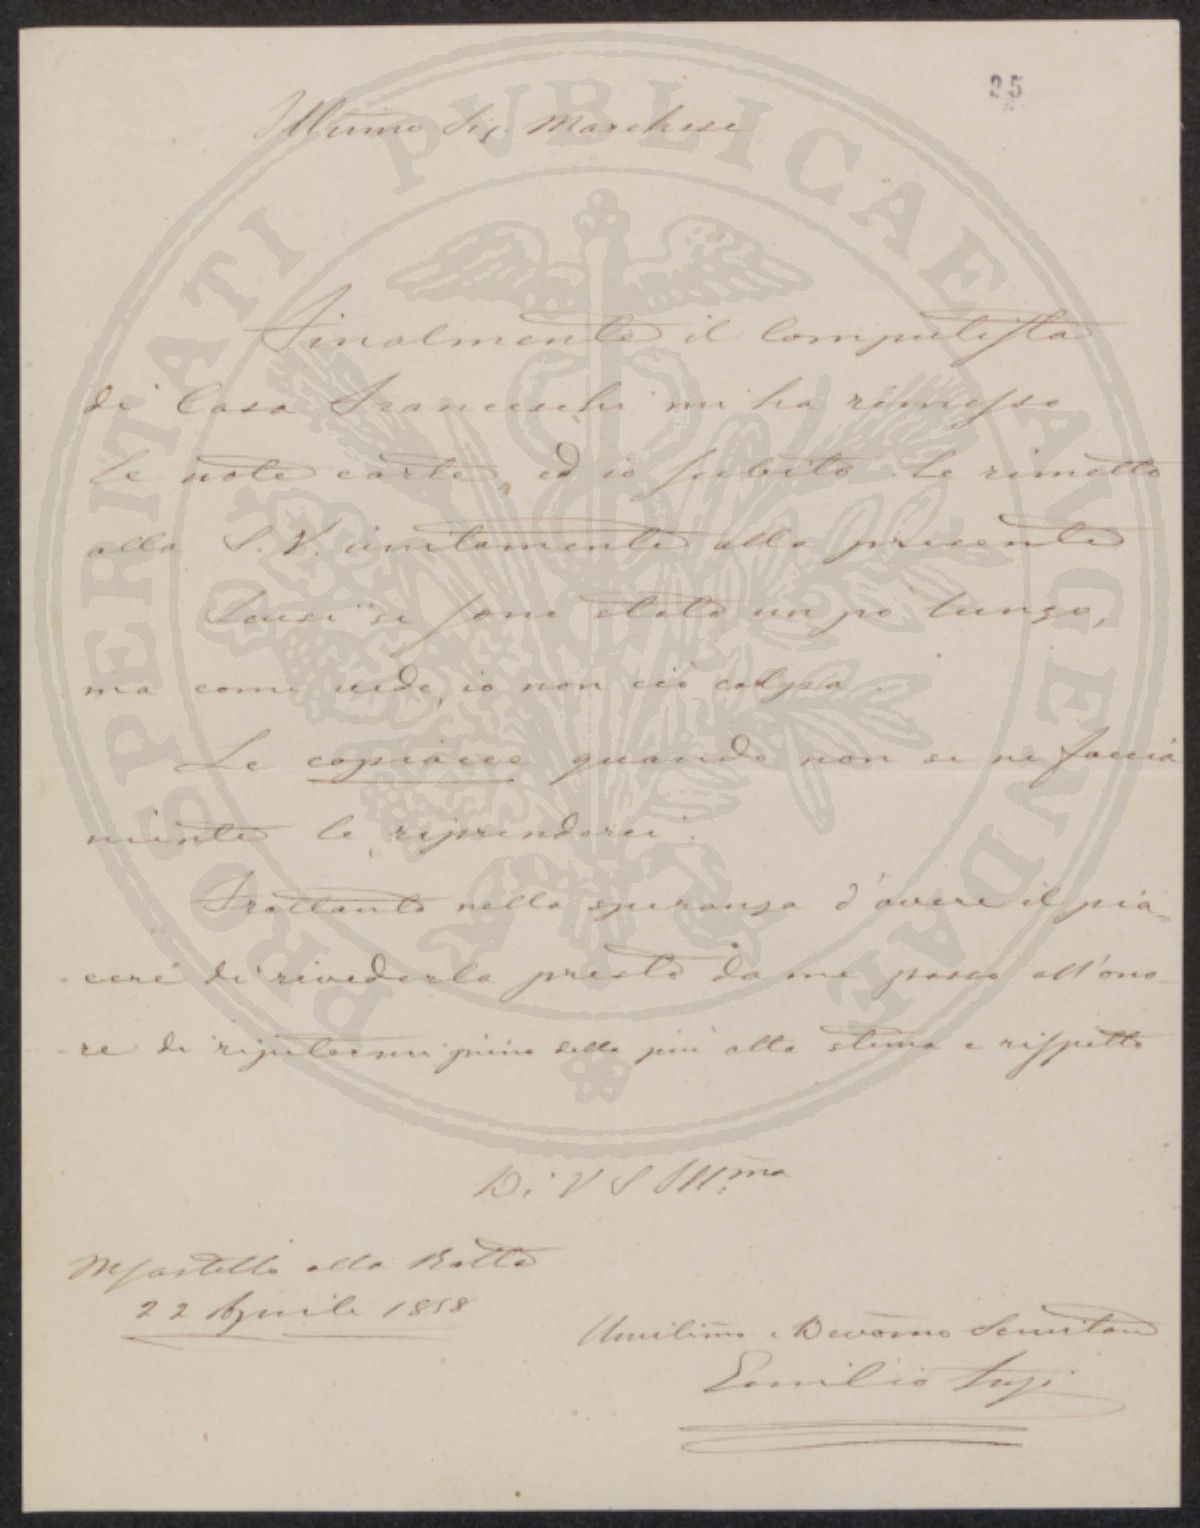 25
Illmo Sig. Marchese
Finalmente il Computista
di Casa Franceschi mi ha rimesso
le note carte, ed io subito le rimetto
alla S. V. unitamente alla presente
Scusi se sono stato un pò lungo,
ma come vede, io non ciò colpa.
Le copiacce quando non se ne faccia
niente le riprenderei.
Frattanto nella speranza d'avere il pia=
cere di rivederla presto da me passo all'ono
re di ripetermi pieno della più alta stima e rispetto
Di V S Ill.ma
alla Rotta
22 Aprile 1858
Umilimo e Devõmo Servitore
Emilio
PROSPERITATI PVBLICAE AVGEVDAE